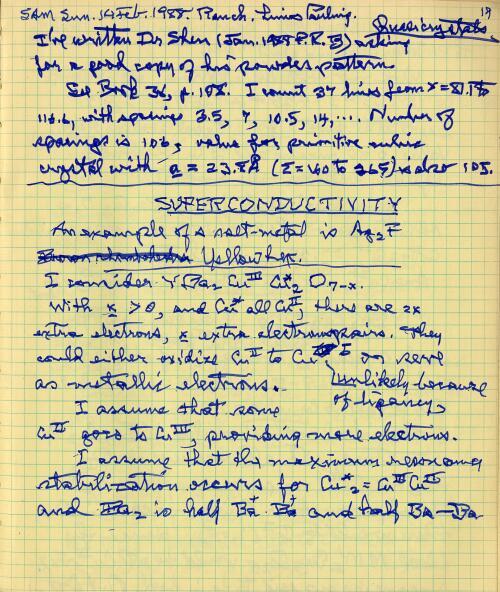 5AM Sun. 14 Feb. 1988. Ranch. Linus Pauling.
Quasicrystals.
I've written Dr Shen (Jan. 1988 P.R. B) asking
for a good copy of his powder pattern.
See Book 36, p. 198. I count 37 lines from x = 81.1 to
116.6, with spacings 3.5, 7, 10.5, 14, .... Number of
spacings is 106; value for primitive cubic
crystal with a = 23.8Å (Σ = 160 to 265) is also 105.
SUPERCONDUCTIVITY
An example of a salt-metal is Ag2F
Yellowher.
I consider YBa2 CuIII Cu*2 O7-x.
With x > 0, and Cu* all CuII, there are 2x
extra electrons, x extra electron pairs. They
could either oxidize CuII to CuI or serve
as metallic electrons.
unlikely because
of ligancy,
I assume that some
CuII goes to CuIII, providing more electrons.
I assume that the maximum resonance
stabilization occurs for Cu*2 = CuIII CuII
and Ba2 is half Ba+ Ba+ and half Ba—Ba